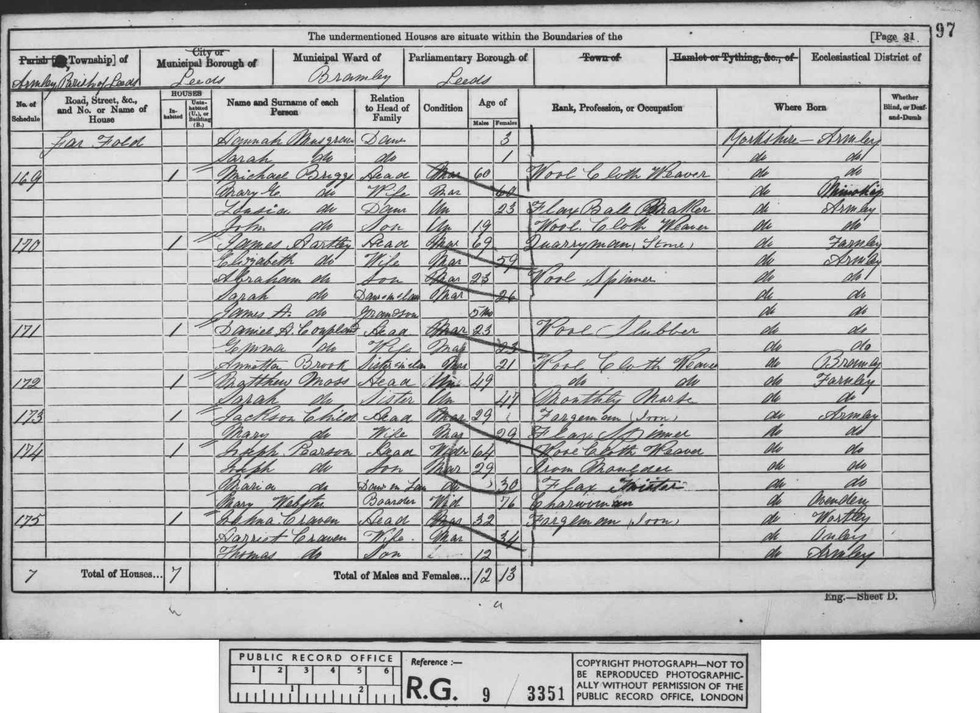 97
The undermentioned Houses are situate within the Boundaries of the [Page 31
Parish [or Township] of City or Municipal Borough of Municipal Ward of Parliamentary Borough of Town of Hamlet or Tything, &c., of Ecclesiastical District of
Armley Parish of Leeds Leeds Bramley Leeds
No. of Schedule Road, Street, &c., and No. or Name of House HOUSES In-habited Unin-habited (U.), or Building (B.) Name and Surname of each Person Relation to Head of Family Condition Age of Males Females Rank, Profession, or Occupation Where Born Whether Blind, or Deaf-and-Dumb
Fold Hannah Musgrave Daur 3 Yorkshire - Armley
Sarah do do 1 do do
169 1 Michael Briggs Head Mar 60 Wool Cloth Weaver do do
Mary E. do Wife Mar 60 do
do Daur Un 23 Flax Ball do Armley
John do Son Un 19 Wool Cloth Weaver do do
170 1 James Hartley Head Mar 69 Quarryman (Stone) do Farnley
Elizabeth do Wife Mar 59 do Armley
Abraham do Son Mar 23 Wool Spinner do do
Sarah do Daur in law Mar 26 do do
James A. do Grandson 5 Mo do do
171 1 Daniel A. Head Mar 23 Wool Slubber do do
Emma do Wife Mar 23 do do
Brook Sister in law 21 Wool Cloth Weaver do Bramley
172 1 Matthew Moss Head Un 49 do do do Farnley
Sarah do Sister Un 47 Monthly Nurse do do
173 1 Jackson Child Head Mar 29 Forgeman (Iron) do Armley
Mary do Wife Mar 29 Flax Spinner do do
174 1 Joseph Pearson Head Widr 64 Wool Cloth Weaver do do
Joseph do Son Mar 29 Iron do do
Maria do Daur in Law do 30 Flax do do
Mary Webster Boarder Wid 76 Charwoman do
175 1 Craven Head Mar 32 Forgeman (Iron) do Wortley
Harriet Craven Wife Mar 34 do
Thomas do Son 12 do Armley
7 Total of Houses... 7 Total of Males and Females... 12 13
Eng.—Sheet D.
PUBLIC RECORD OFFICE
1 2 3 4 5 6
1 2
Reference :—
R.G. 9 / 3351
COPYRIGHT PHOTOGRAPH—NOT TO
BE REPRODUCED PHOTOGRAPHIC-
ALLY WITHOUT PERMISSION OF THE
PUBLIC RECORD OFFICE, LONDON